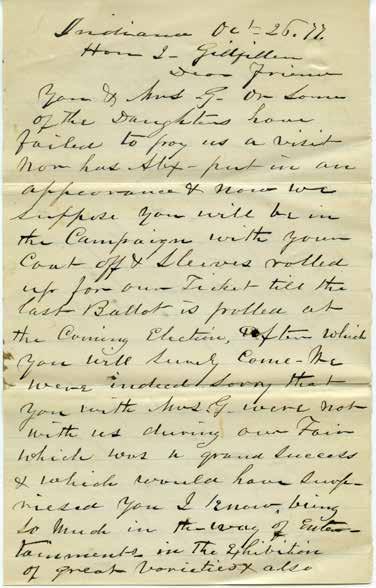 Indiana Oct - 26. 77.
Hon J - Gilfillen
Dear Friend
You & Mrs - G - or some
of the Daughters have
failed to pay us a visit
nor has Alx - put in an
appearance & now we
suppose you will be in
the Campaign with your
Coat off & Sleeves rolled
up for our Ticket till the
last Ballot is polled at
the Coming Election, After which
you will surely Come - We
were indeed sorry that
you with Mrs. G - were not
with us during our Fair
which was a grand success
& which would have surp-
riesed you I know, being
so much in the - way of Enter-
tainments in the Exhibition
of great varieties & also